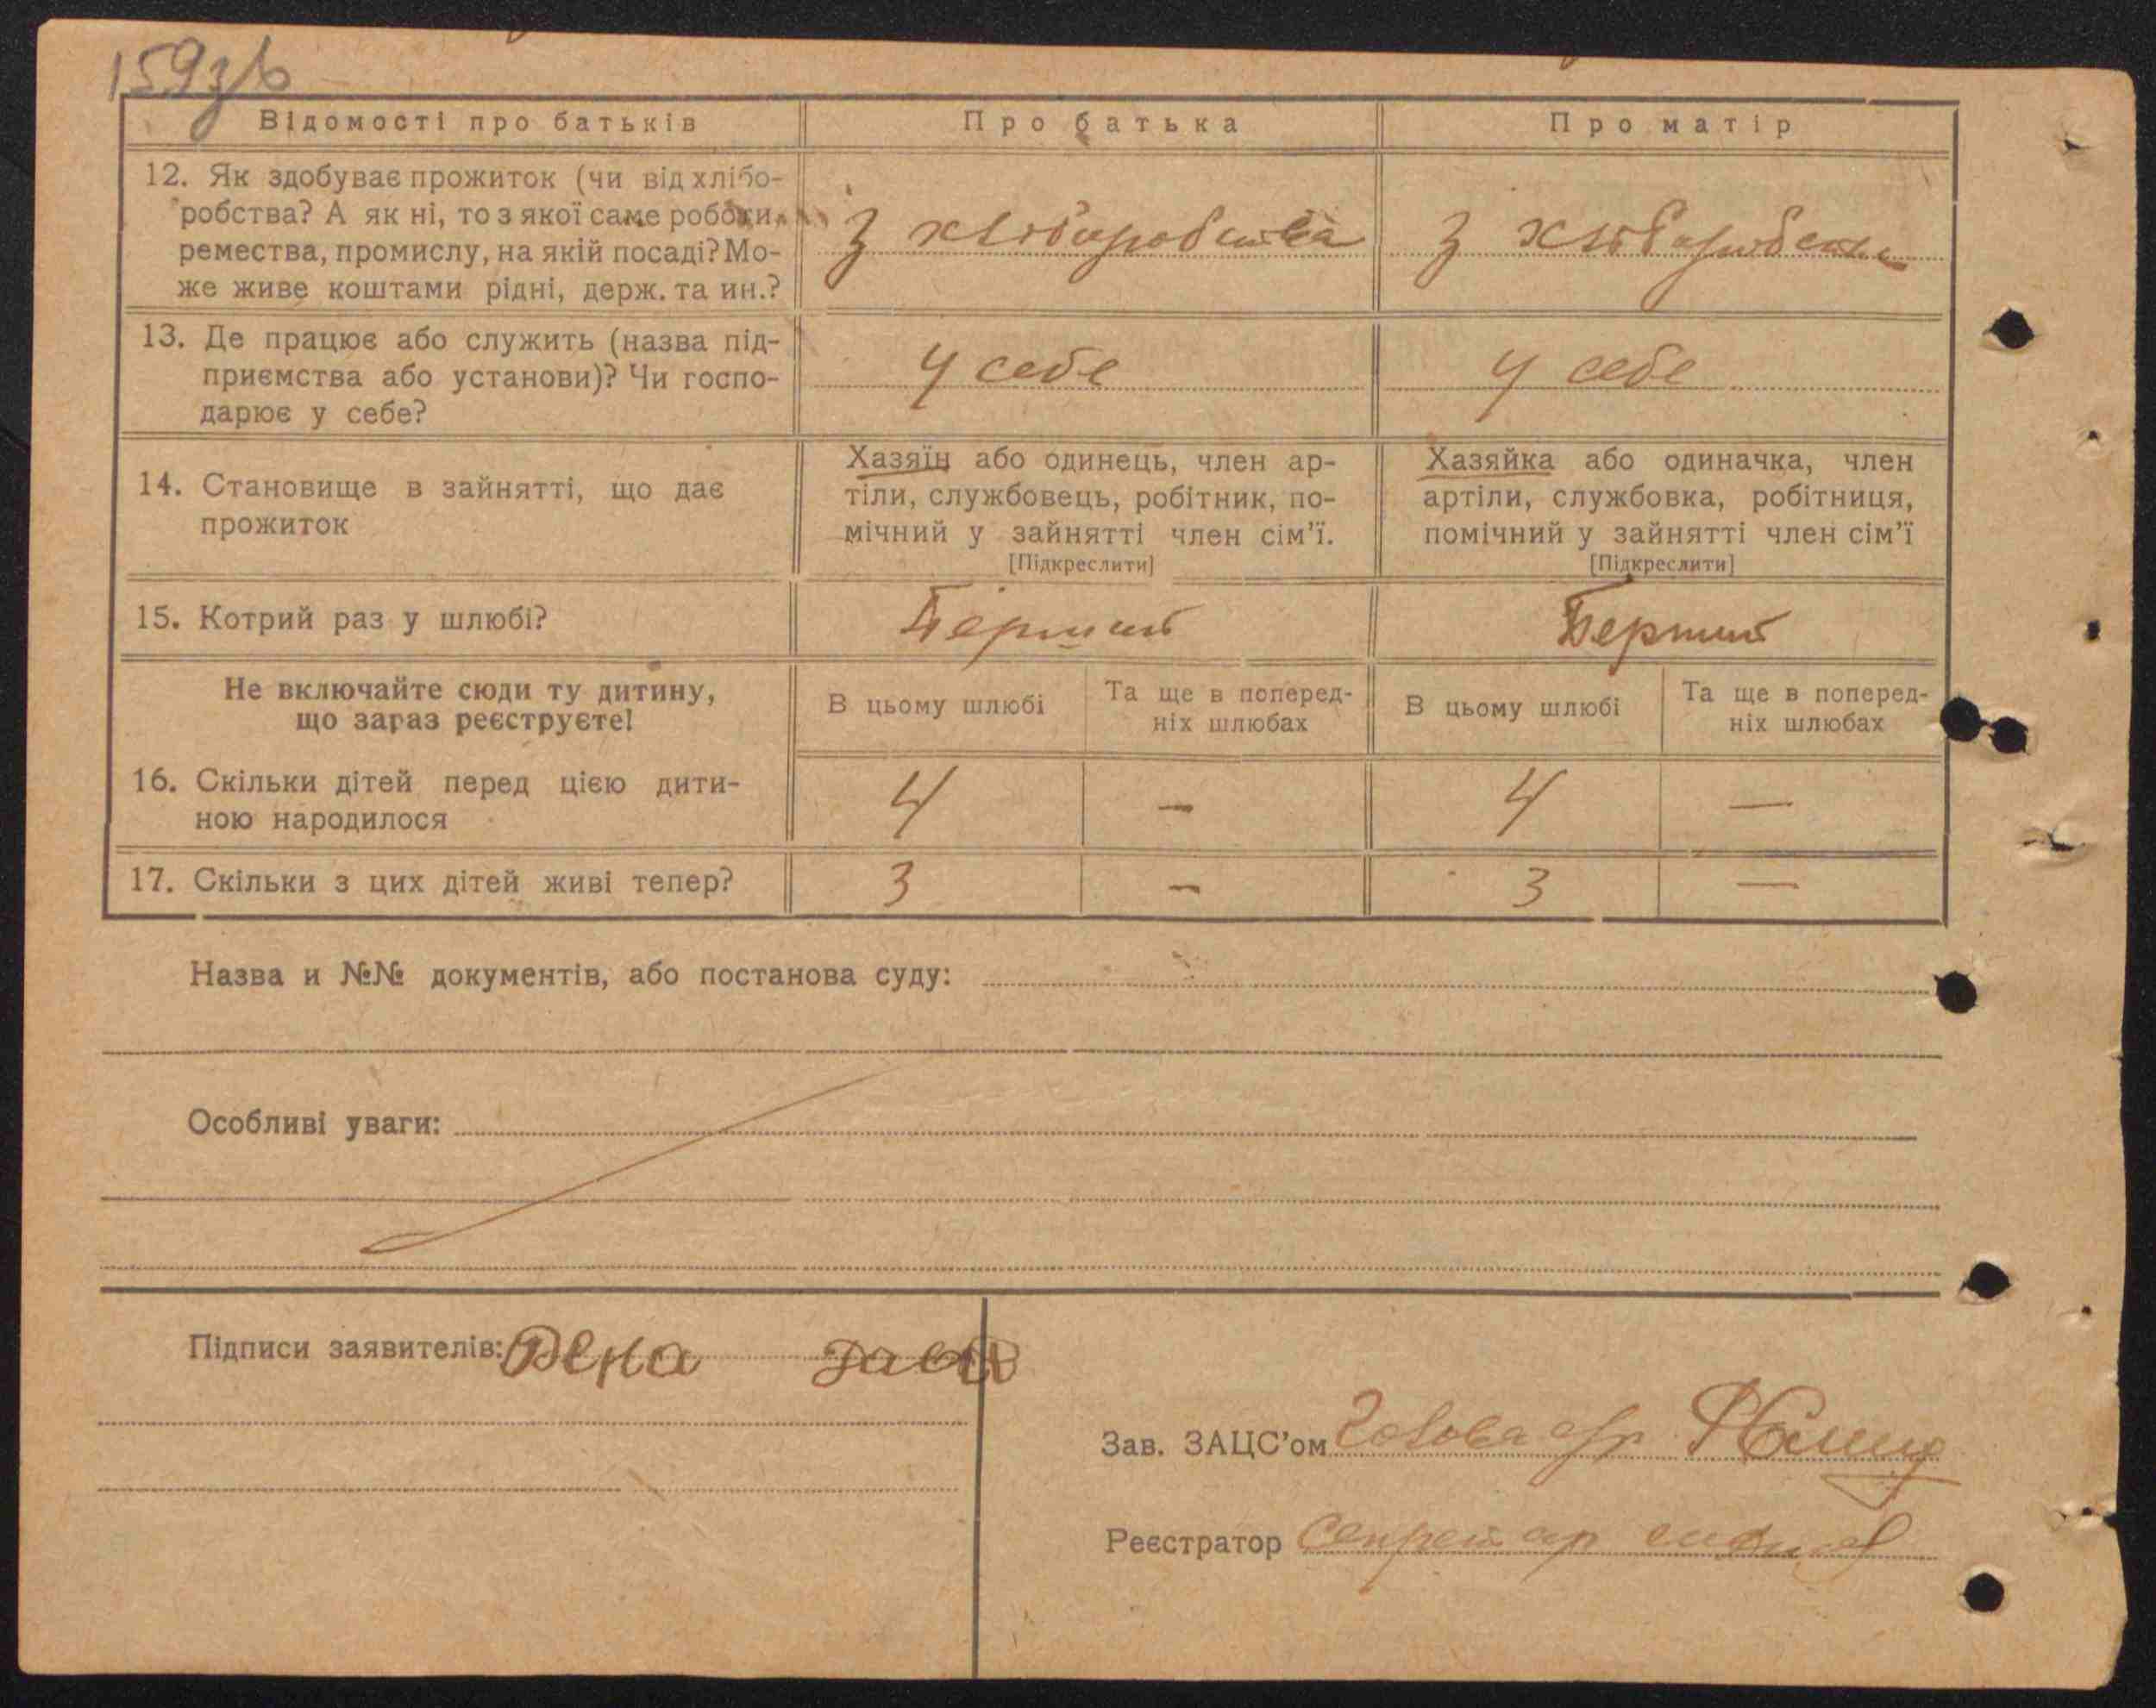 159зв
Відомості про батьків
Про батька
Про матір
12. Як здобуває прожиток (чи від хлібо-
робства? А як ні, то з якої саме роботи,
ремества, промислу, на якій посаді? Мо-
же живе коштами рідні, держ. та ин.?
З хліборобства
З хліборобства
13. Де працює або служить (назва під-
приємства або установи)? Чи госпо-
дарює у себе?
У себе
У себе
14. Становище в зайнятті, що дає
прожиток
Хазяїн або одинець, член ар-
тіли, службовець, робітник, по-
мічний у зайнятті член сім'ї.
[Підкреслити]
Хазяйка або одиначка, член
артіли, службовка, робітниця,
помічний у зайнятті член сім'ї
[Підкреслити]
15. Котрий раз у шлюбі?
Перший
Перший
Не включайте сюди ту дитину,
що зараз реєструєте!
В цьому шлюбі
Та ще в поперед-
ніх шлюбах
В цьому шлюбі
Та ще в поперед-
ніх шлюбах
16. Скільки дітей перед цією дити-
ною народилося
4 — 4 —
17. Скільки з цих дітей живі тепер?
3 — 3 —
Назва и №№ документів, або постанова суду:
Особливі уваги:
Підписи заявителів:
Зав. ЗАЦС'ом Голова с/р
Реєстратор Секретар